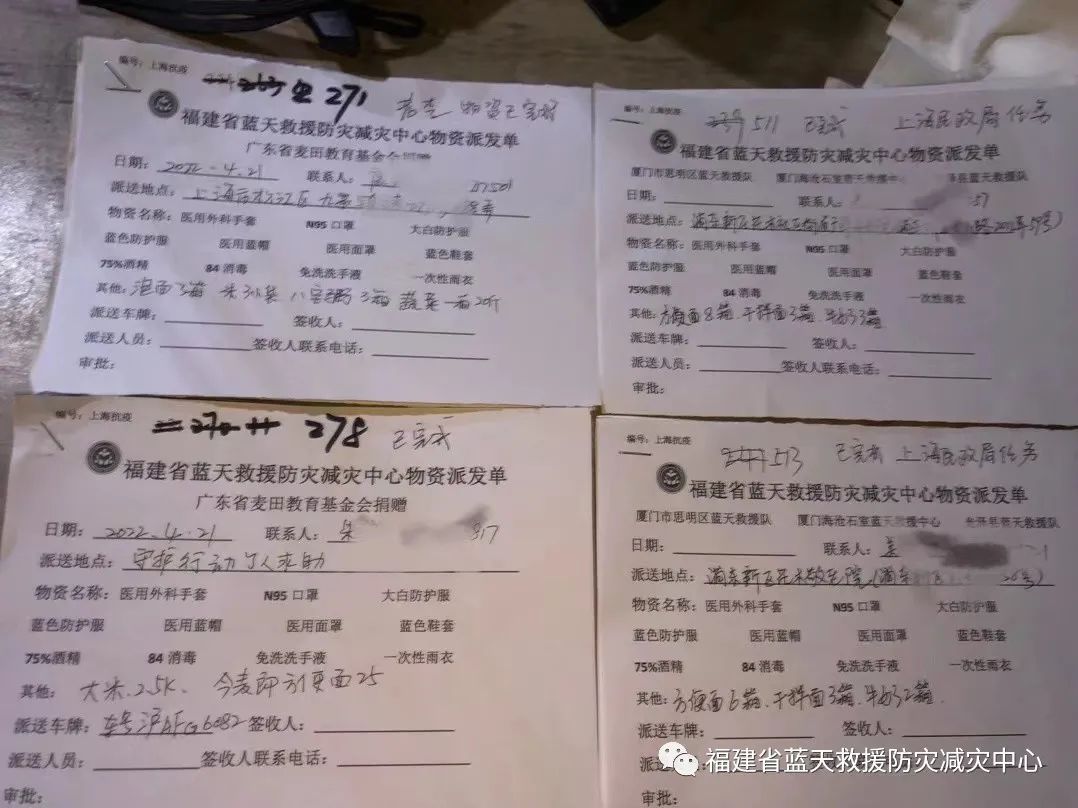 编号：上海抗疫
271 物资已完成
福建省蓝天救援防灾减灾中心物资派发单
广东省麦田教育基金会捐赠
日期：2022.4.21 联系人：
派送地点：上海市松江区九亭
物资名称：医用外科手套 N95口罩 大白防护服
蓝色防护服 医用蓝帽 医用面罩 蓝色鞋套
75%酒精 84消毒 免洗洗手液 一次性雨衣
其他：泡面3箱 八宝粥3箱 蔬菜一箱20斤
派送车牌： 签收人：
派送人员： 签收人联系电话：
审批：
编号：上海抗疫
511 已完成 上海民政局任务
福建省蓝天救援防灾减灾中心物资派发单
厦门市思明区蓝天救援队 厦门海沧石室蓝天救援中心 蓝天救援队
日期： 联系人： 57
派送地点：浦东新区花木
物资名称：医用外科手套 N95口罩 大白防护服
蓝色防护服 医用蓝帽 医用面罩 蓝色鞋套
75%酒精 84消毒 免洗洗手液 一次性雨衣
其他：方便面8箱、干拌面3箱、牛奶3箱
派送车牌： 签收人：
派送人员： 签收人联系电话：
审批：
编号：上海抗疫
278 已完成
福建省蓝天救援防灾减灾中心物资派发单
广东省麦田教育基金会捐赠
日期：2022.4.21 联系人：朱 317
派送地点：守护行动 人求助
物资名称：医用外科手套 N95口罩 大白防护服
蓝色防护服 医用蓝帽 医用面罩 蓝色鞋套
75%酒精 84消毒 免洗洗手液 一次性雨衣
其他：大米2.5K、今麦郎方便面25
派送车牌：车号沪AFG6082 签收人：
派送人员： 签收人联系电话：
审批：
编号：上海抗疫
513 已完成 上海民政局任务
福建省蓝天救援防灾减灾中心物资派发单
厦门市思明区蓝天救援队 厦门海沧石室蓝天救援中心 蓝天救援队
日期： 联系人：
派送地点：浦东新区花木敬老院（浦东新区 20号）
物资名称：医用外科手套 N95口罩 大白防护服
蓝色防护服 医用蓝帽 医用面罩 蓝色鞋套
75%酒精 84消毒 免洗洗手液 一次性雨衣
其他：方便面6箱、干拌面3箱、牛奶2箱
派送车牌： 签收人：
派送
审批：
福建省蓝天救援防灾减灾中心